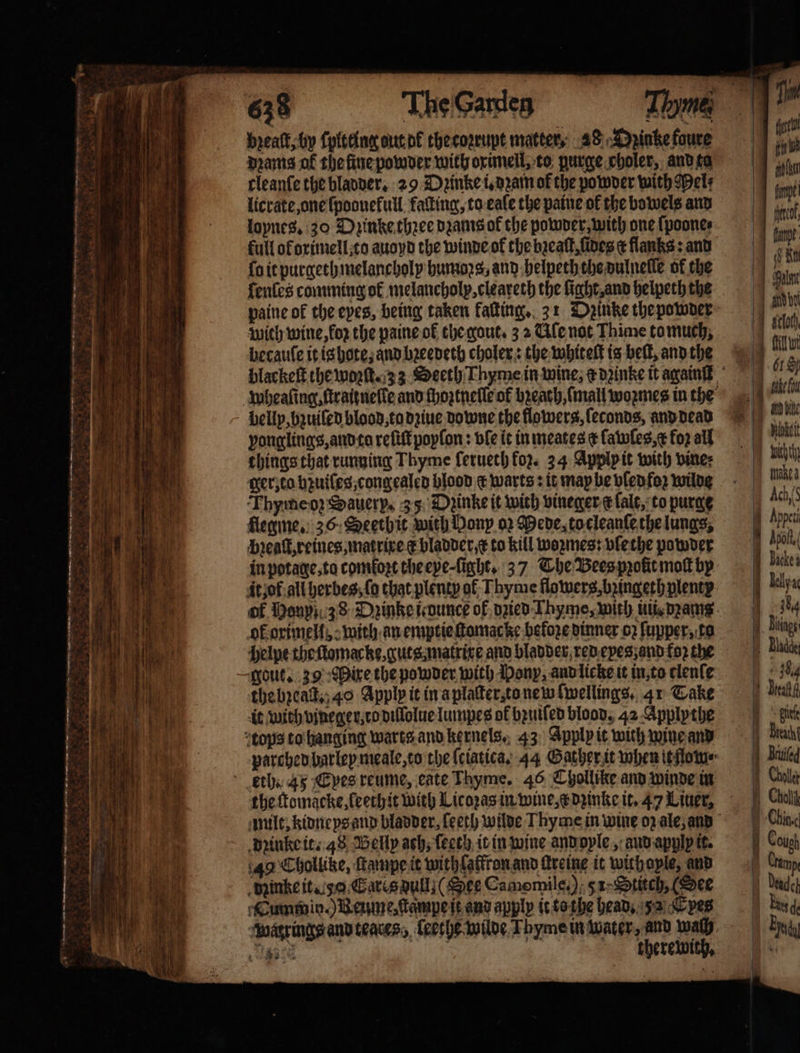 638 The Garden Thyme,
breast, by spitting out of the corrupt matter, 28 Drinke foure
drams of the fine powder with oximell, to purge choler, and to
cleanse the bladder. 29 Drinke i. dram of the powder with Mel-
licrate, one spoonefull fasting, to ease the paine of the bowels and
loynes. 30 Drinke three drams of the powder, with one spoone-
full of oximell, to auoyd the winde of the breast, sides & flanks: and
so it purgeth melancholy humors, and helpeth the dulnesse of the
senses comming of melancholy, cleareth the sight, and helpeth the
paine of the eyes, being taken fasting. 31 Drinke the powder
with wine, for the paine of the gout. 32 Use not Thime to much,
because it is hote, and breedeth choler: the whitest is best, and the
blackest the worst. 33 Seeth Thyme in wine, & drinke it against
wheasing, straitnesse and shortnesse of breath, small wormes in the
belly, bruised blood, to driue downe the flowers, seconds, and dead
yonglings, and to resist poyson: vse it in meates & sawses, & for all
things that running Thyme serueth for. 34 Apply it with vine-
ger, to bruises, congealed blood & warts: it may be vsed for wilde
Thyme or Sauery. 35 Drinke it with vineger & salt, to purge
flegme. 36 Seeth it with Hony or Mede, to cleanse the lungs,
breast, reines, matrixe & bladder, & to kill wormes: vse the powder
in potage, to comfort the eye-sight. 37 The Bees profit most by
it, of all herbes, so that plenty of Thyme flowers, bringeth plenty
of Hony. 38 Drinke i. ounce of dried Thyme, with iiii. drams
of oximell, with an emptie stomacke before dinner or supper, to
helpe the stomacke, guts, matrixe and bladder, red eyes, and for the
gout. 39 Mixe the powder with Hony, and licke it in, to clense
the breast. 40 Apply it in a plaster, to new swellings. 41 Take
it with vineger, to dissolue lumpes of bruised blood. 42 Apply the
tops to hanging warts and kernels. 43 Apply it with wine and
parched barley meale, to the sciatica. 44 Gather it when it flow-
eth. 45 Eyes reume, eate Thyme. 46 Chollike and winde in
the stomacke, seeth it with Licoras in wine, & drinke it. 47 Liuer,
milt, kidneys and bladder, seeth wilde Thyme in wine or ale, and
drinke it. 48 Belly ach, seeth it in wine and oyle, and apply it.
49 Chollike, stampe it with saffron and streine it with oyle, and
drinke it. 50 Eares dull, (See Camomile.) 51 Stitch, (See
Cummin.) Reume, stampe it and apply it to the head. 52 Eyes
watrings and teares, seethe wilde Thyme in water, and wash
therewith.